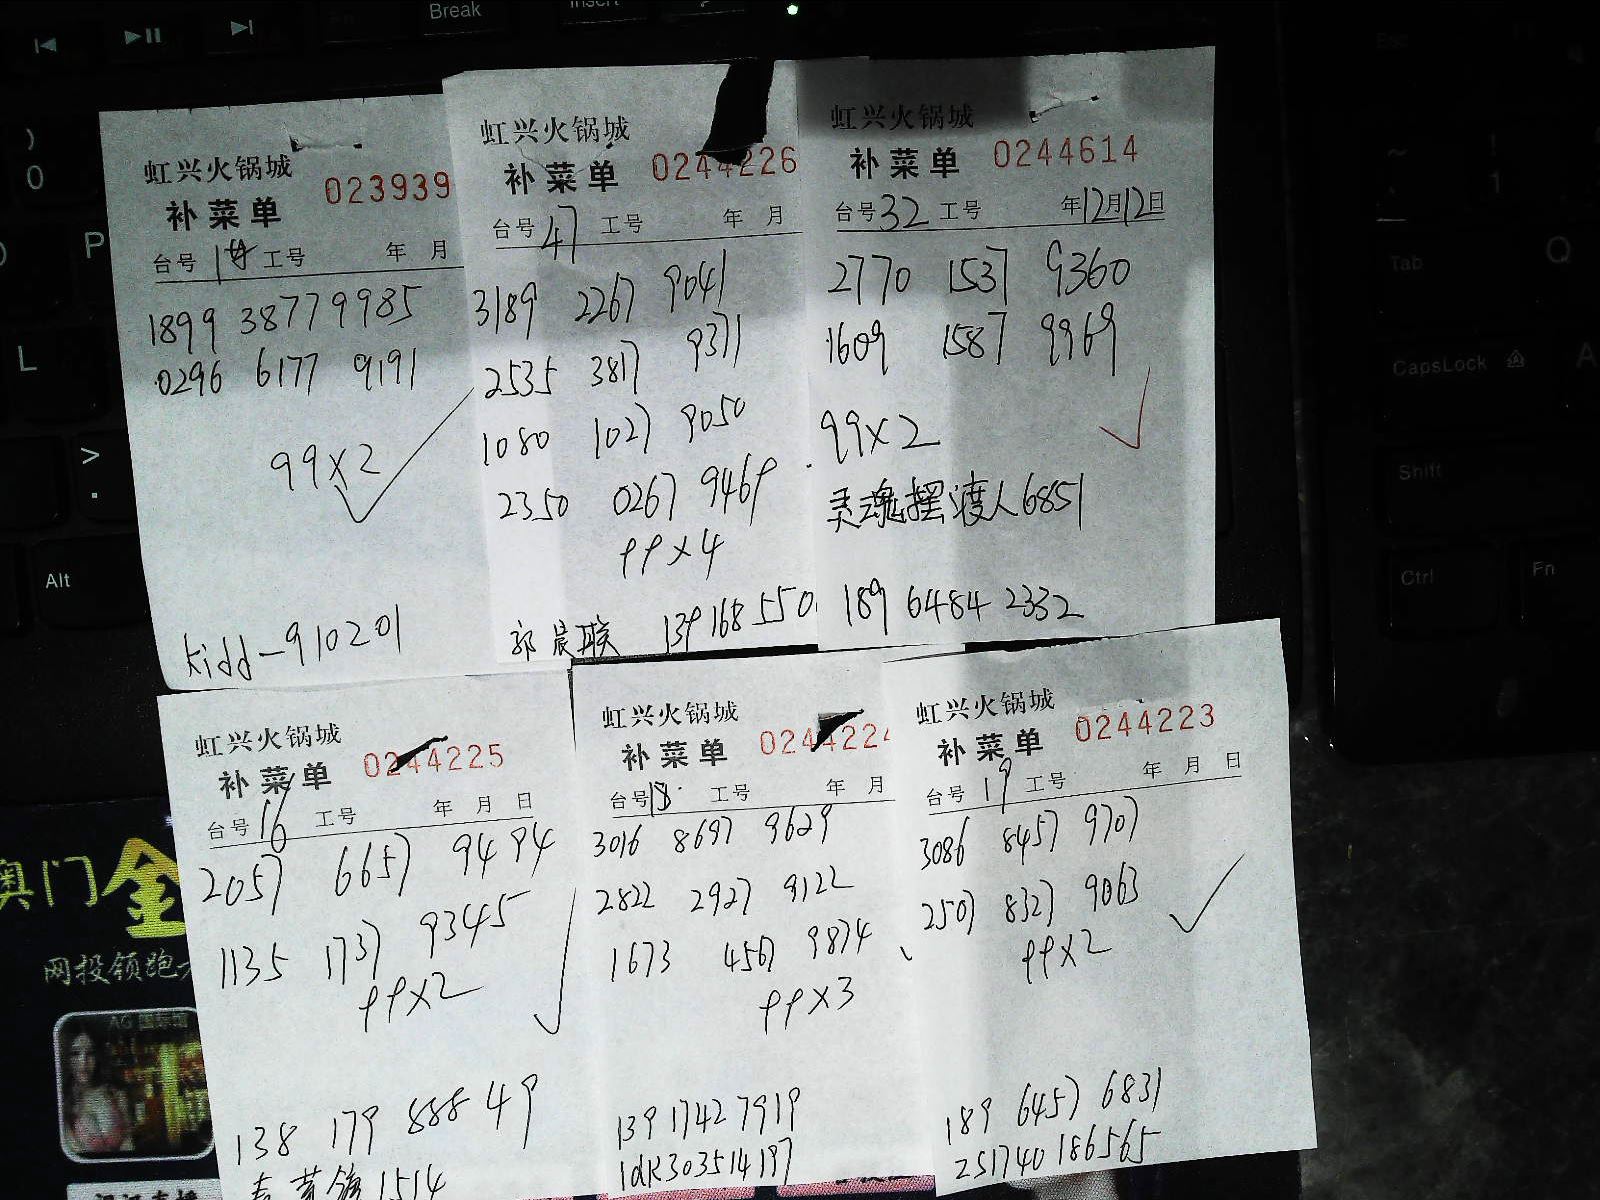 Break
Insert
虹兴火锅城
补菜单 023939
台号 工号 年 月
1899 3877 9985
0296 6177 9191
99×2
kidd-910201
虹兴火锅城
补菜单 0244226
台号 47 工号 年 月
3189 2267 9041
2535 3817 9371
1080 1027 9050
2350 0267 9469
99×4
郭晨联 139168550
虹兴火锅城
补菜单 0244614
台号 32 工号 年12月12日
2770 1537 9360
1609 1587 9969
99×2
灵魂摆渡人6851
189 6484 2332
虹兴火锅城
补菜单 0244225
台号 16 工号 年 月 日
2057 6657 9494
1135 1737 9345
99×2
138 179 888 49
1514
虹兴火锅城
补菜单 024422
台号 18 工号 年 月
3016 8697 9629
2822 2927 9122
1673 4567 9874
99×3
139 1742 7919
1dk303514197
虹兴火锅城
补菜单 0244223
台号 19 工号 年 月 日
3086 8457 9707
2507 8327 9063
99×2
189 6457 6831
251740186565
)
0
P
L
>
.
Alt
Tab
Q
CapsLock
A
Shift
Ctrl
Fn
~
!
1
澳门金
网投领跑
AG 国际馆